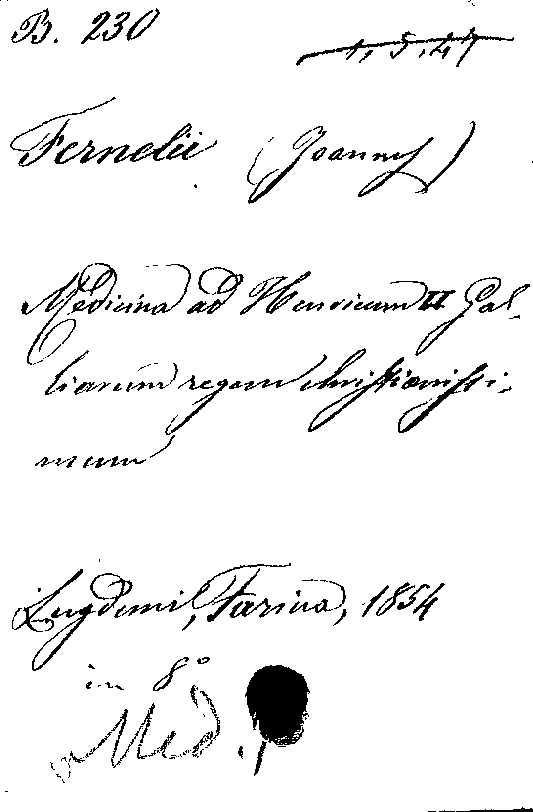 B. 230
1, 5, 47
Fernelii (Joannes)
Medicina ad Henricum II Gal-
liarum regem christianissi-
mum
Lugduni, Farina, 1854
in 8°
Med.